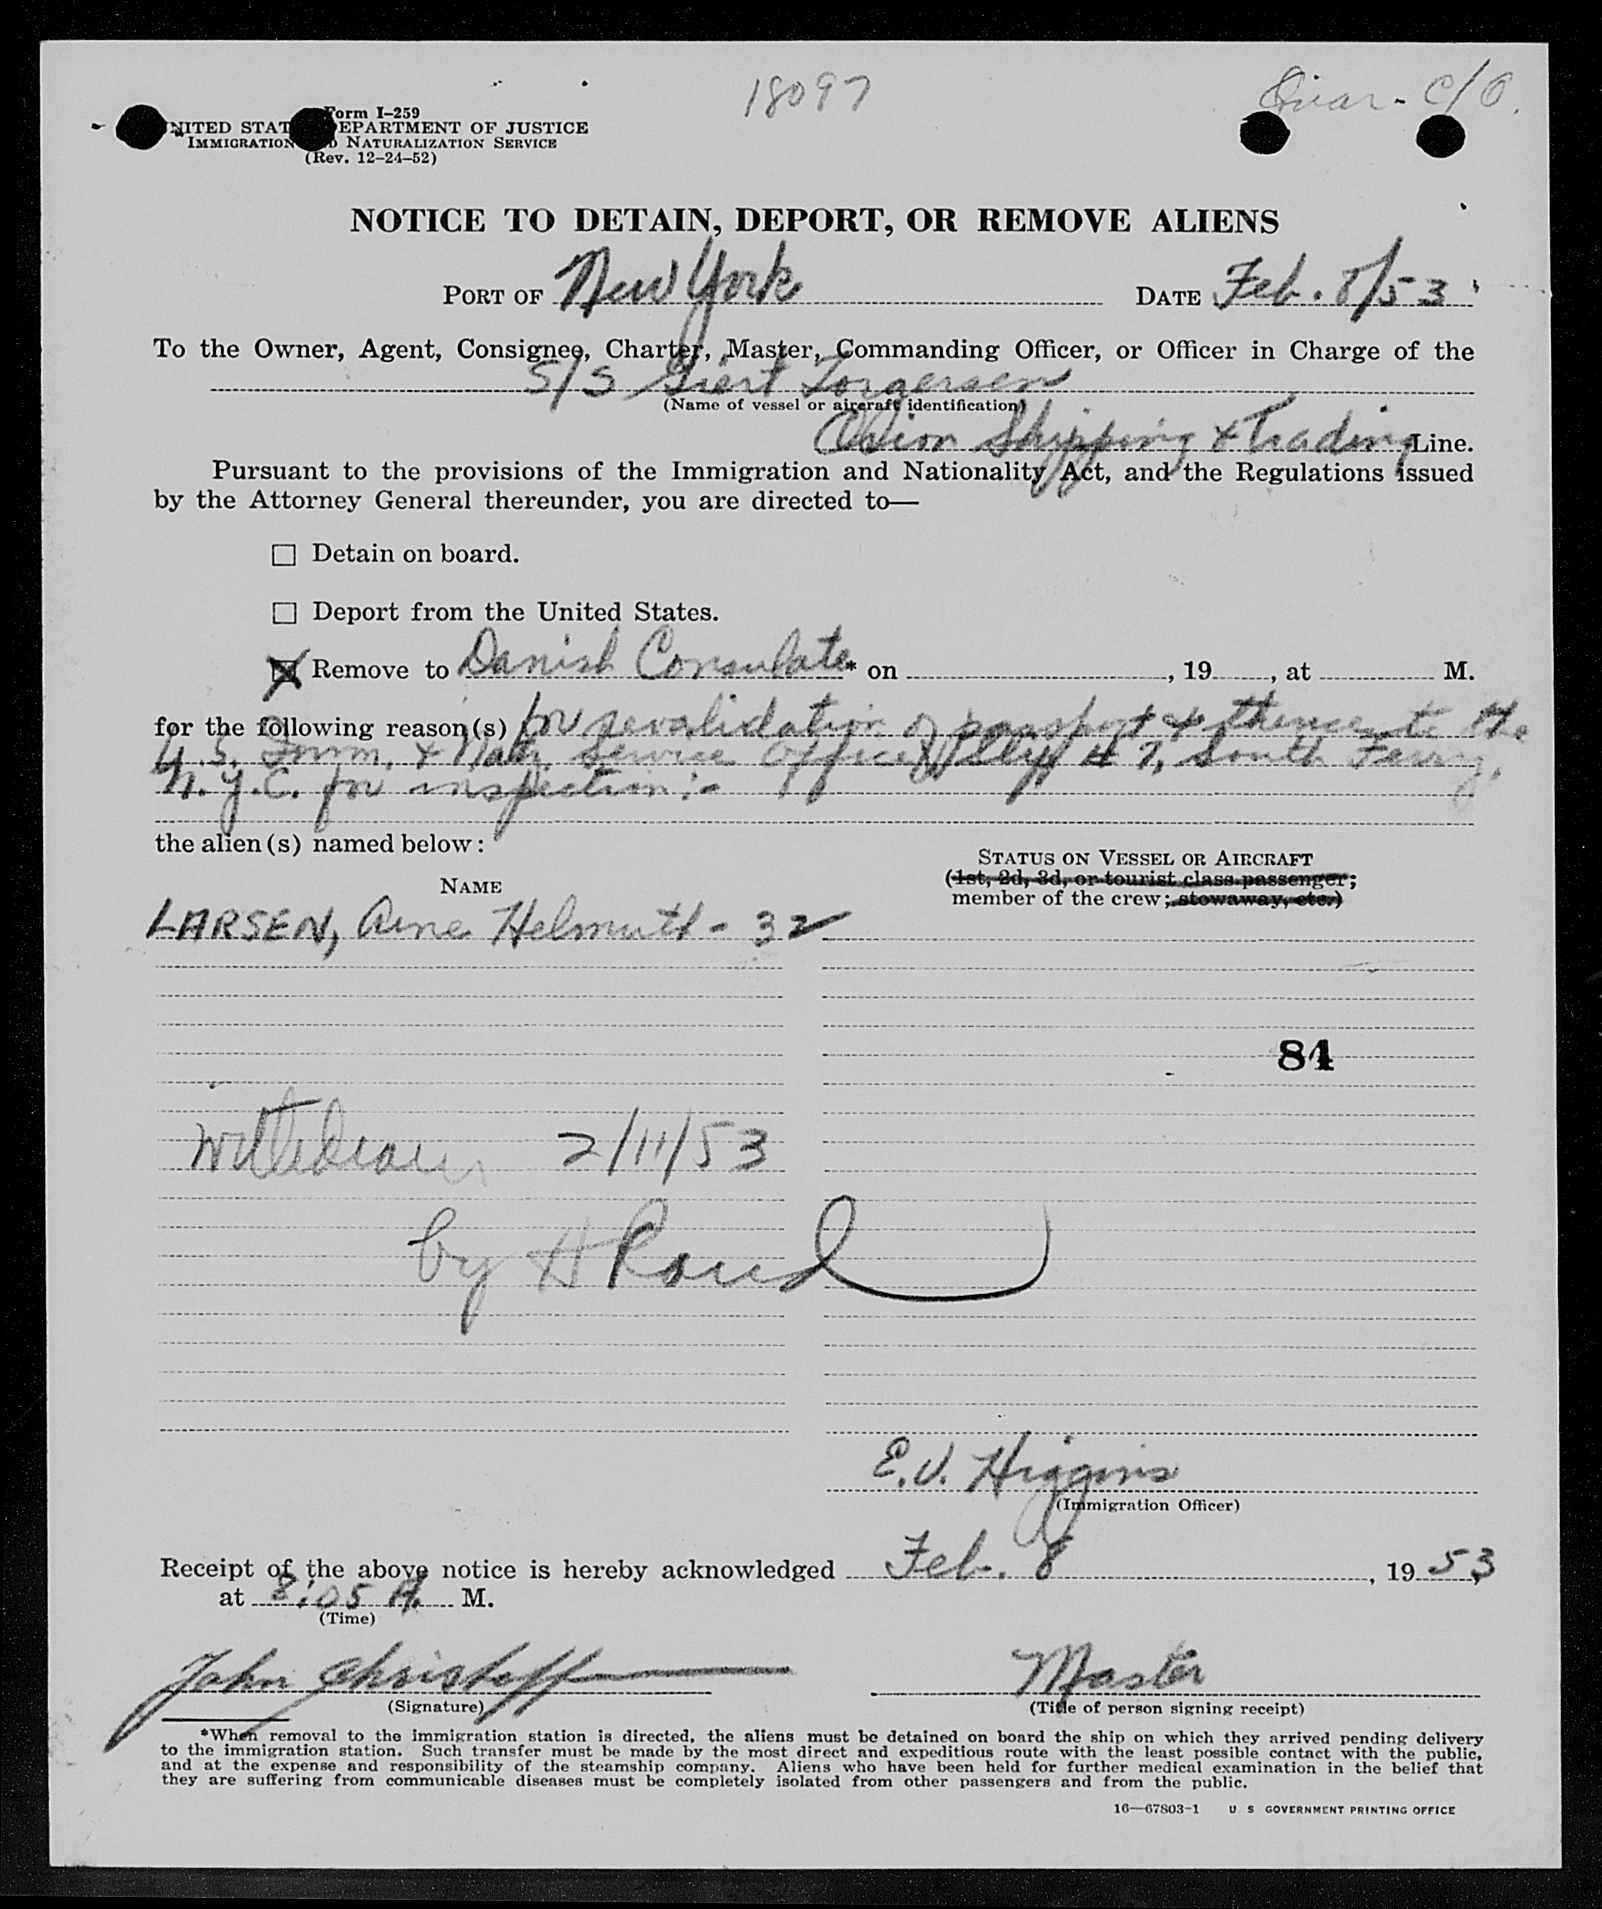 18097
Quar - C/O.
Form I-259
UNITED STATES DEPARTMENT OF JUSTICE
IMMIGRATION AND NATURALIZATION SERVICE
(Rev. 12-24-52)
NOTICE TO DETAIN, DEPORT, OR REMOVE ALIENS
PORT OF New York DATE Feb. 8/53
To the Owner, Agent, Consignee, Charter, Master, Commanding Officer, or Officer in Charge of the
S/S Giert Torgersen
(Name of vessel or aircraft identification)
Orion Shipping & Trading Line.
Pursuant to the provisions of the Immigration and Nationality Act, and the Regulations issued
by the Attorney General thereunder, you are directed to—
☐ Detain on board.
☐ Deport from the United States.
☒ Remove to Danish Consulate* on , 19 , at M.
for the following reason(s) for revalidation of passport & thence to the
U.S. Imm. & Natz. Service Office, Slip # 7, South Ferry,
N.Y.C. for inspection:-
the alien(s) named below:
STATUS ON VESSEL OR AIRCRAFT
(1st, 2d, 3d, or tourist class passenger;
member of the crew; stowaway, etc.)
NAME
LARSEN, Arne Helmuth - 32
84
Withdrawn 2/11/53
by H
E.V. Higgins
(Immigration Officer)
Receipt of the above notice is hereby acknowledged Feb. 8, 1953,
at 8:05 A. M.
(Time)
John Christoff Master
(Signature) (Title of person signing receipt)
*When removal to the immigration station is directed, the aliens must be detained on board the ship on which they arrived pending delivery
to the immigration station. Such transfer must be made by the most direct and expeditious route with the least possible contact with the public,
and at the expense and responsibility of the steamship company. Aliens who have been held for further medical examination in the belief that
they are suffering from communicable diseases must be completely isolated from other passengers and from the public.
16—67803-1 U S GOVERNMENT PRINTING OFFICE